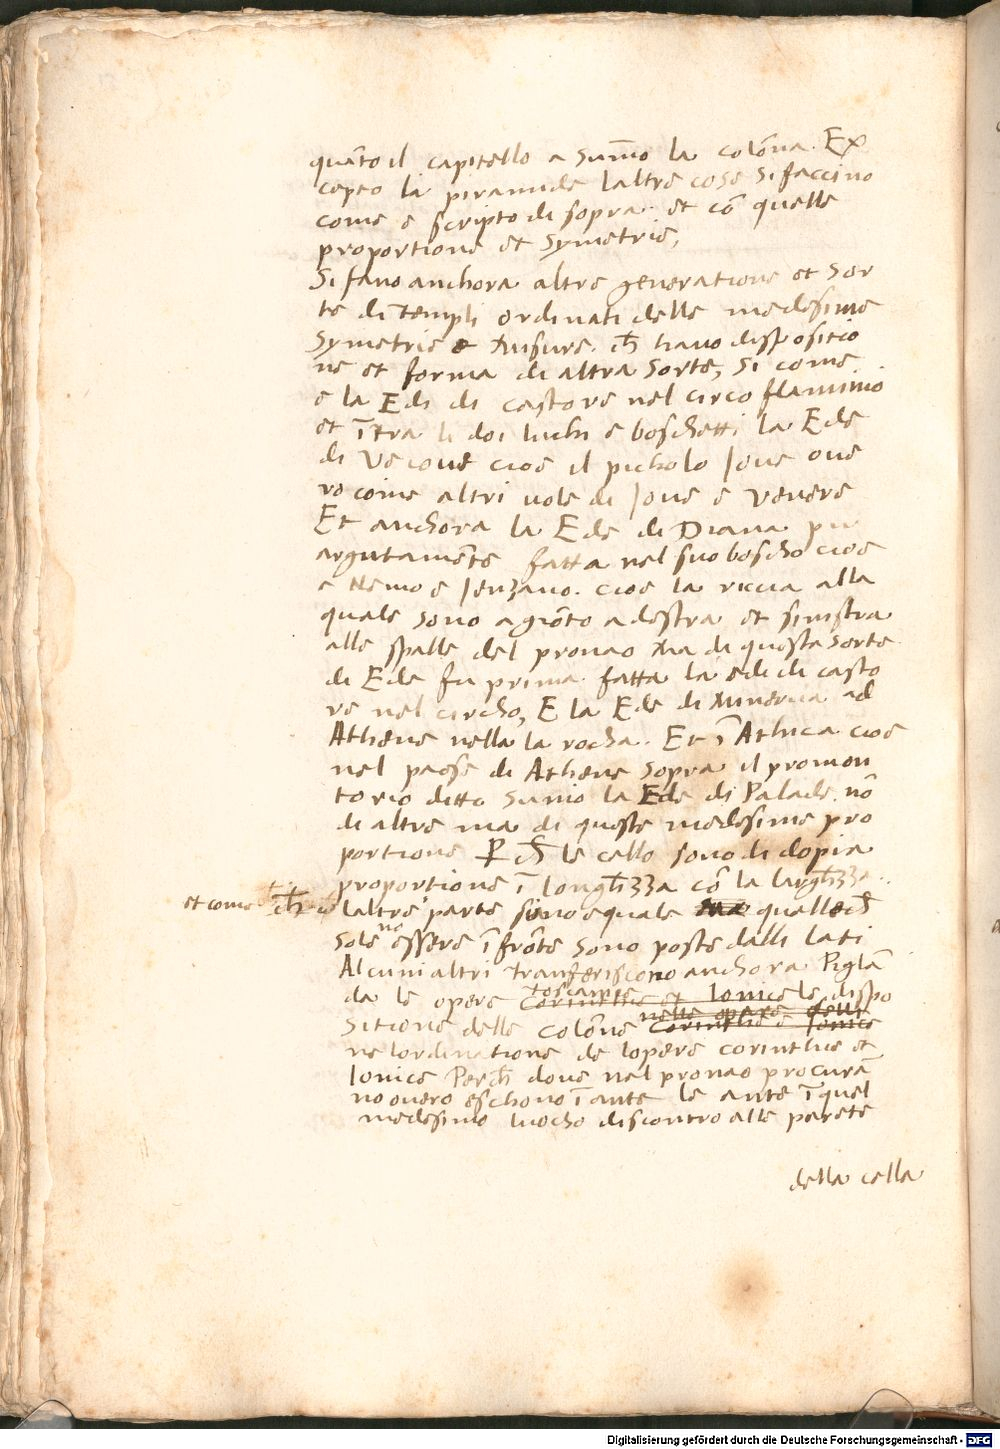 quāto il capitello a sum̄o la colōna. Ex
cepto la piramide laltre cose si faccino
come e scripto di sopra. et cō quelle
proportione et symetrie,
Si fano anchora altre generatione et sor
te di templi ordinati delle medesime
symetrie e misure. ch̄ hano dispositio
ne et forma di altra sorte, si come
e la Edi di castore nel circo flaminio
et ītra li doi luchi e boschetti la Ede
di Veiove cioe il picholo Iove ove
ro come altri vole di Iove e Venere
Et anchora la Ede di Diana piu
argutamēte fatta nel suo boscho cioe
e Nemo e Ienzano. cioe la riccia alla
quale sono a giōto a destra et sinistra
alle spalle del pronao Ma di questa sorte
di Ede fu prima fatta la edi di casto
re nel circho, E la Ede di Minerva ad
Athene nella la rocha. Et ī Athica cioe
nel paese di Athene sopra il promon
torio ditto Sunio la Ede di Palade. nō
di altre ma di queste medesime pro
portione P ch̄ le celle sono di dopia
proportione ī longh̄zza cō la largh̄zza.
et come ch̄ laltre parte sono equale quelle ch̄
sole no essere ī frōte sono poste dalli lati
Alcuni altri tranferiscono anchora Piglā
do le opere toscanice Corinthie et Ionice le dispo
nelle opere delle
sitione delle colōne Corinthie e Ionice
ne lordinatione de lopere corinthie et
Ionice Perch̄ dove nel pronao procurā
no overo eschono ī ante le ante ī quel
medesimo luocho discontro alle parete
della cella
Digitalisierung gefördert durch die Deutsche Forschungsgemeinschaft - DFG